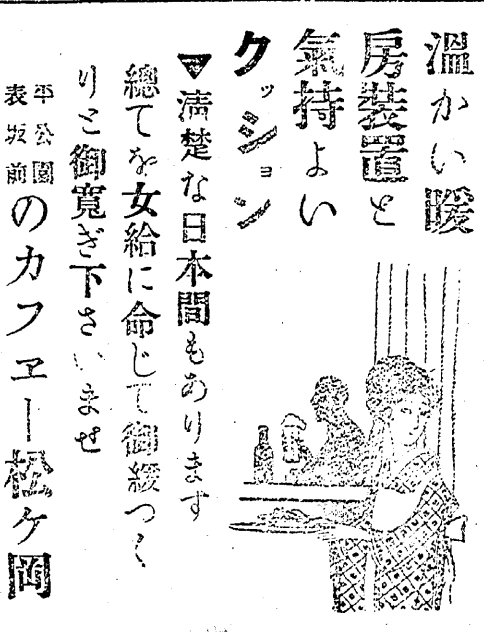 溫かい暖
房装置と
氣持よい
クッション
▼淸楚な日本間もあります
總てを女給に命じて御緩つく
りと御寛ぎ下さいませ
平公園
表坂前
のカフヱー松ケ岡